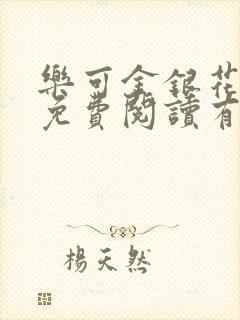 樂可金銀花
免費閱讀有
楊天然